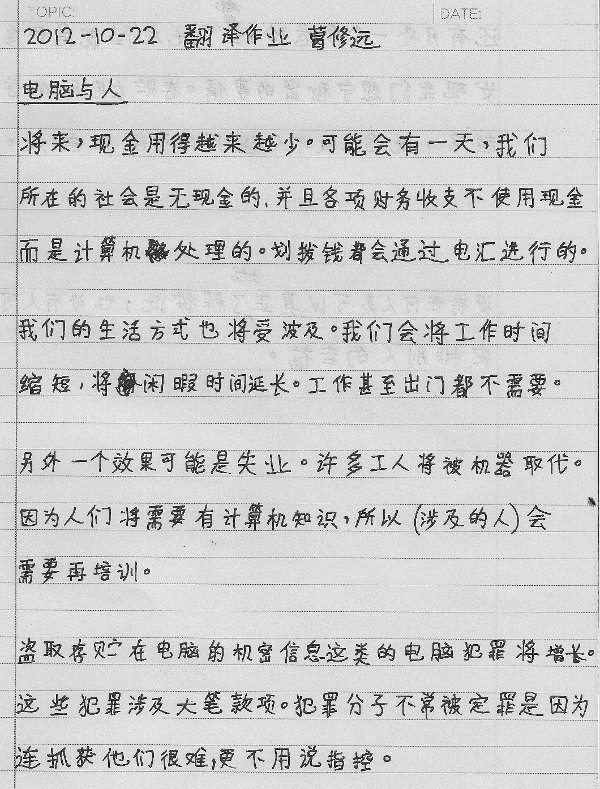 TOPIC:
DATE:
2012-10-22 翻译作业 葛修远
电脑与人
将来,现金用得越来越少。可能会有一天,我们
所在的社会是无现金的,并且各项财务收支不使用现金
而是计算机处理的。划拨钱都会通过电汇进行的。
我们的生活方式也将受波及。我们会将工作时间
缩短,将闲暇时间延长。工作甚至出门都不需要。
另外一个效果可能是失业。许多工人将被机器取代。
因为人们将需要有计算机知识,所以(涉及的人)会
需要再培训。
盗取存贮在电脑的机密信息这类的电脑犯罪将增长。
这些犯罪涉及大笔款项。犯罪分子不常被定罪是因为
连抓获他们很难,更不用说指控。